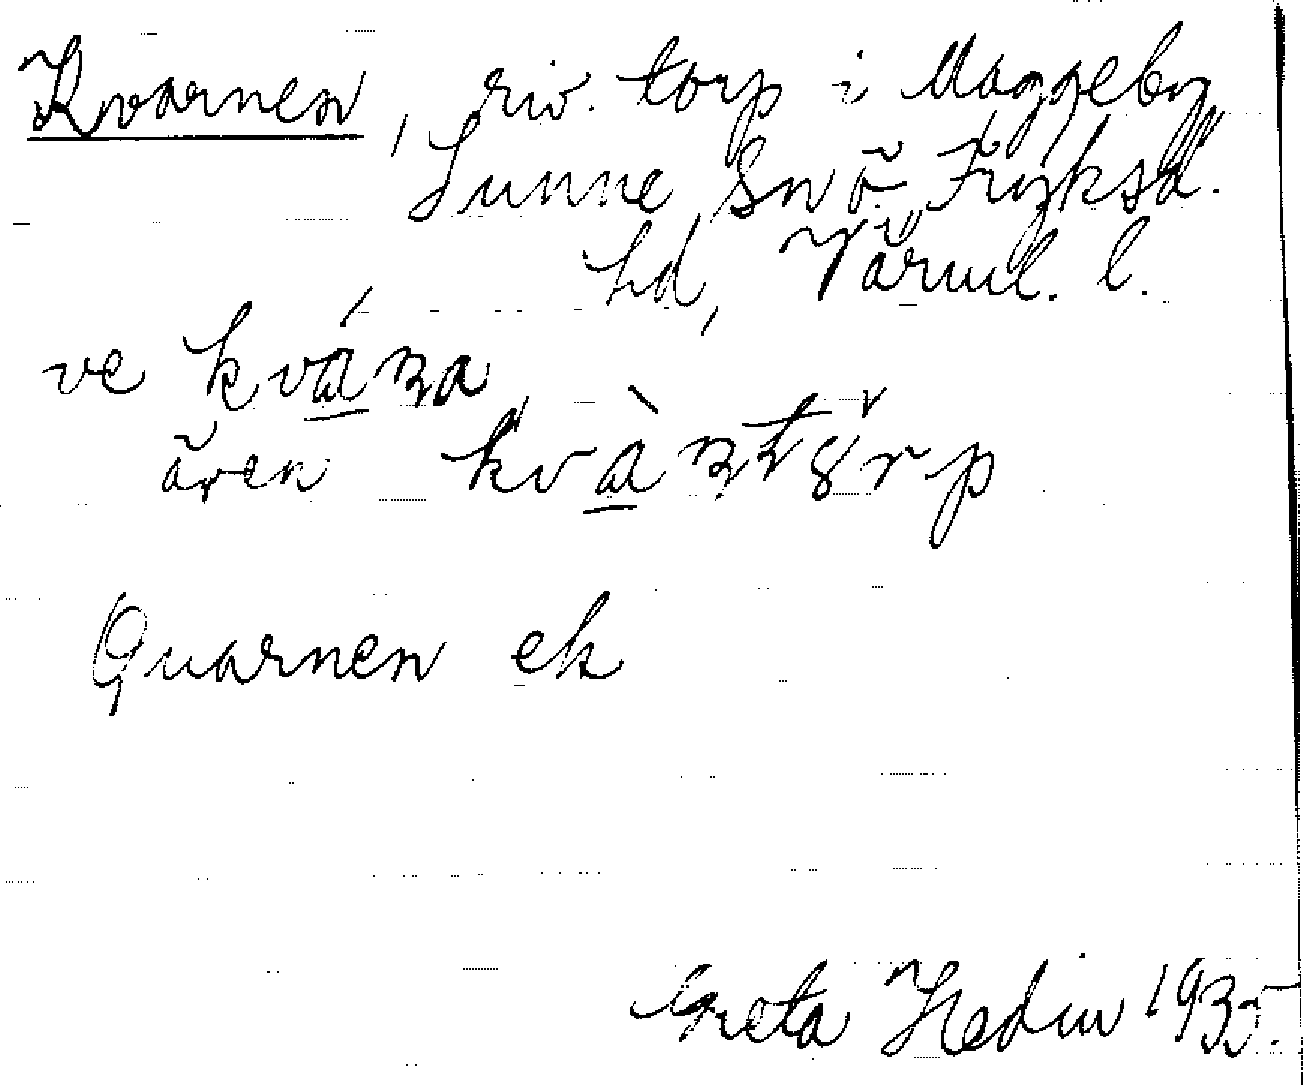 Kvarnen, riv. torp i Maggeby,
Sunne sn o. Fryksd.
hd, Värml. l.
ve kvána
även kvàntôrp
Quarnen ek
Greta Hedin 1935.